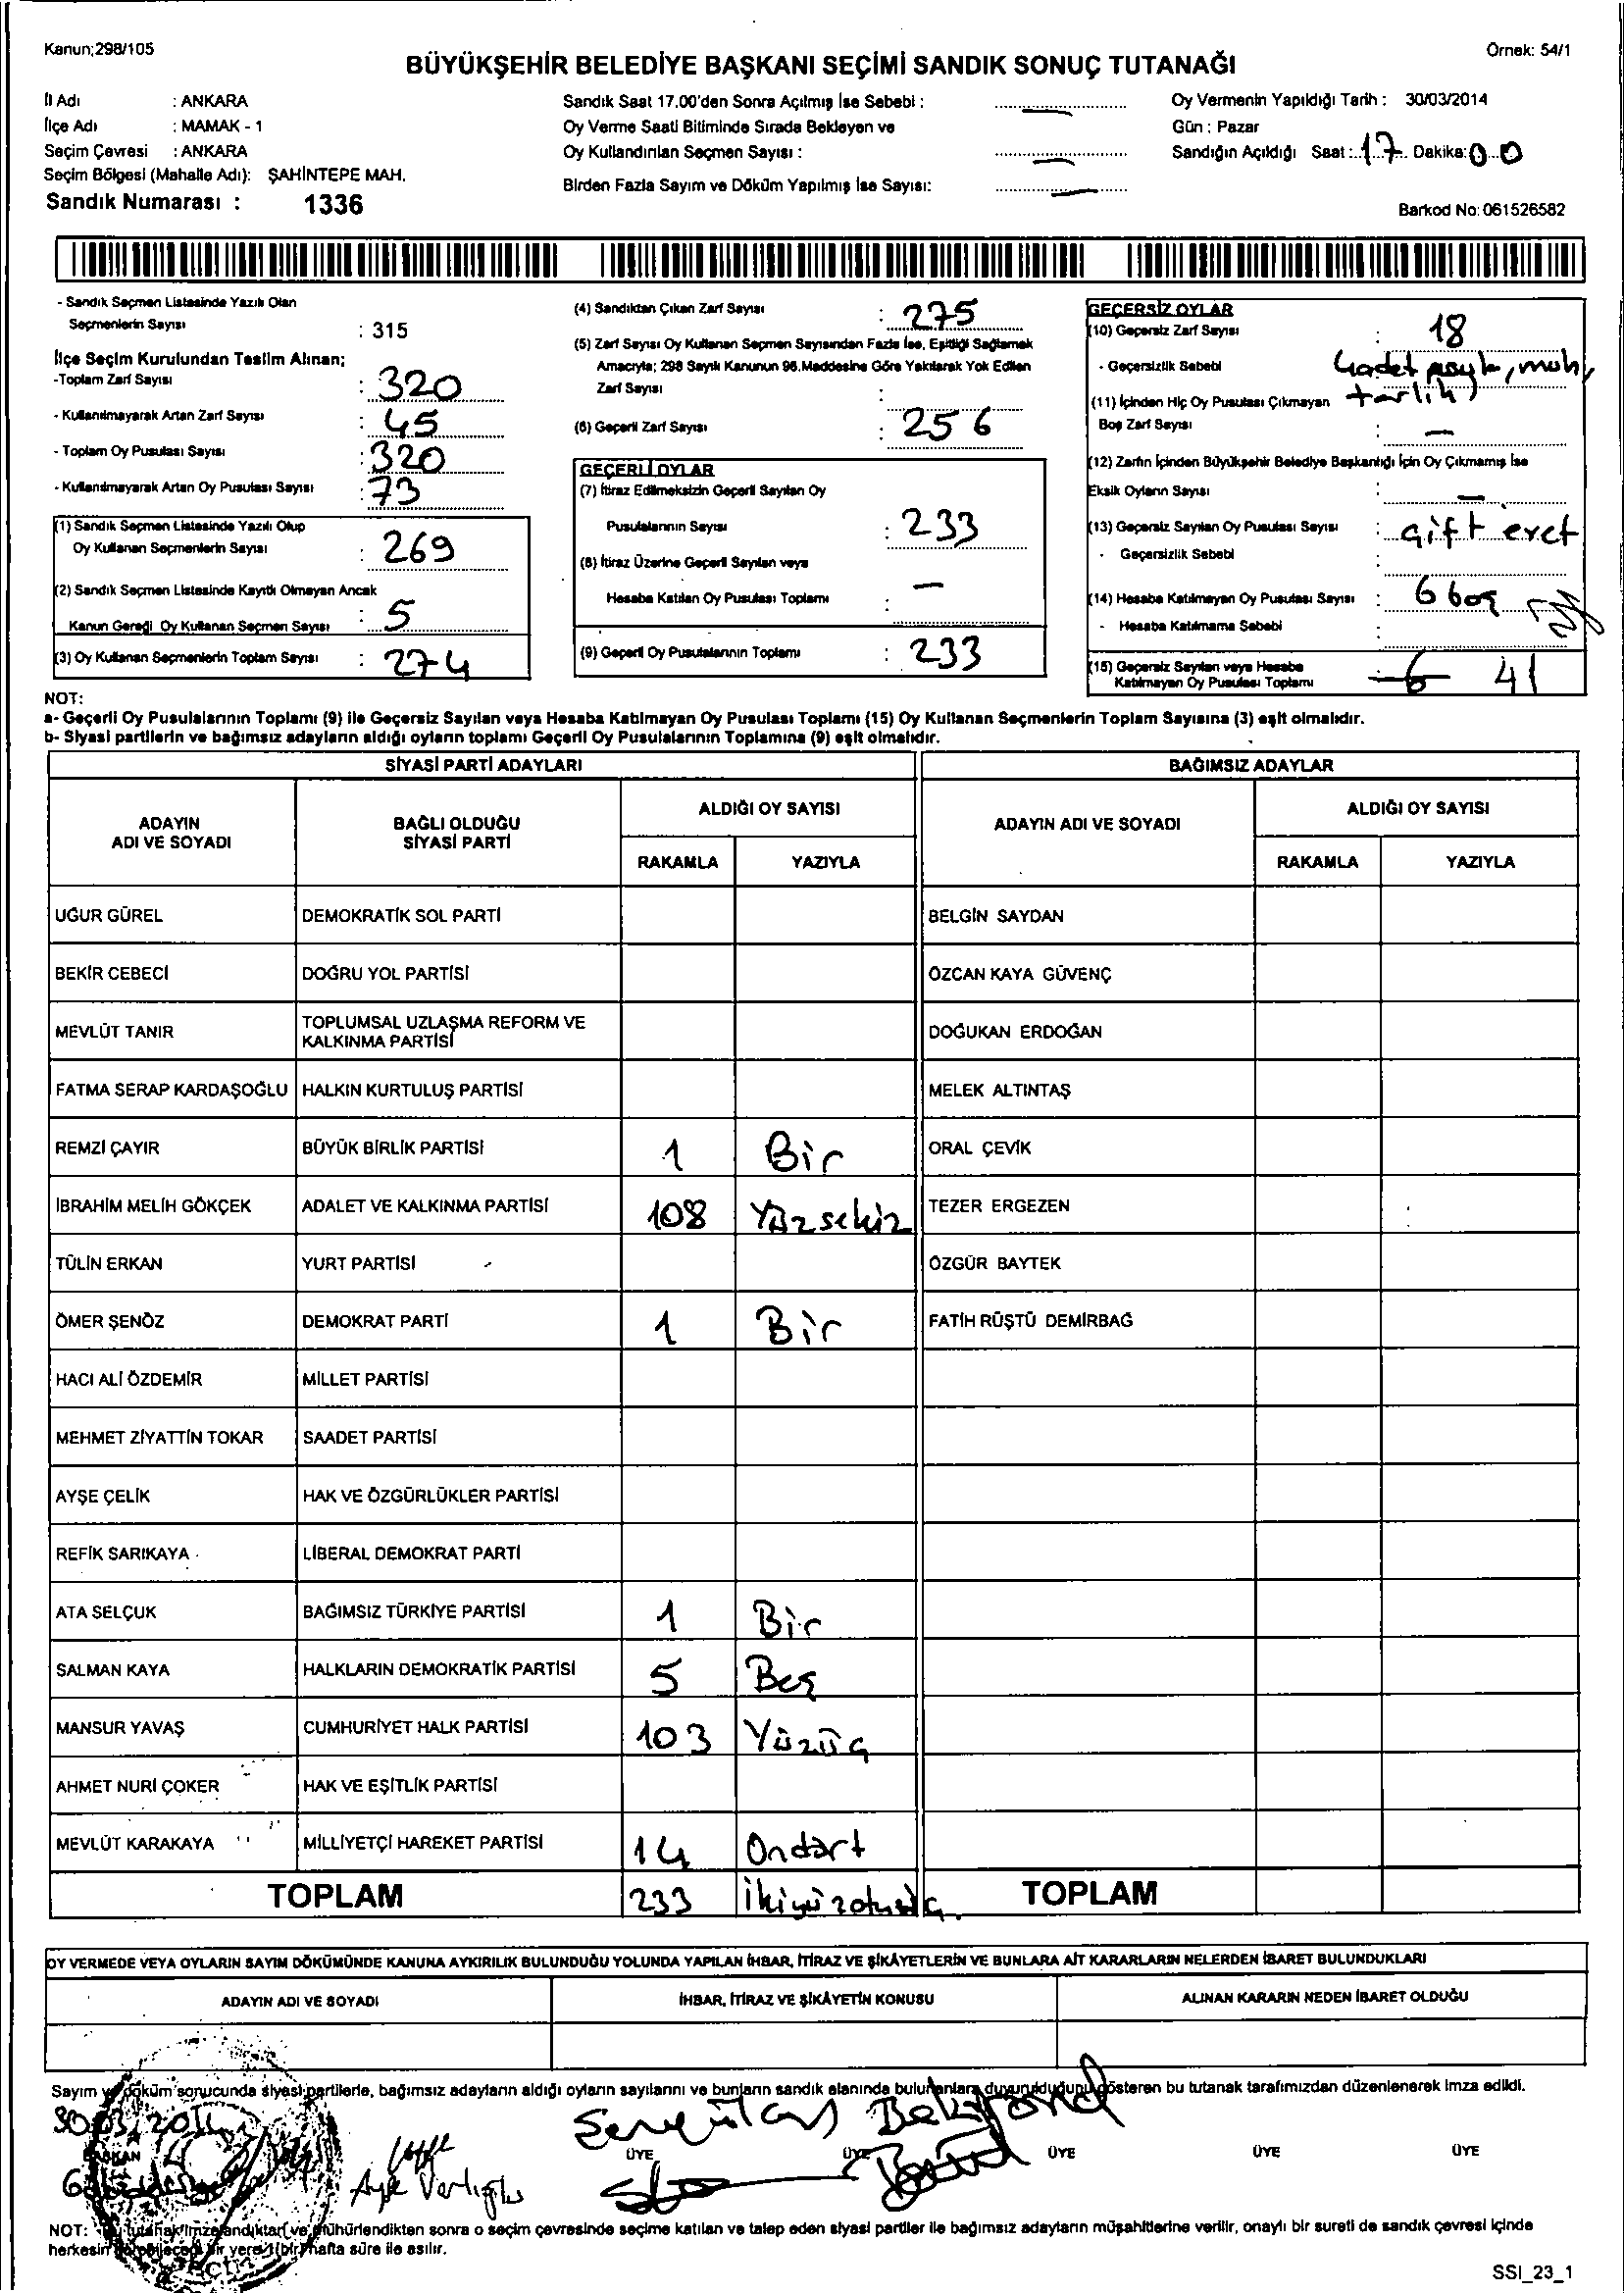 Kanun;298/105
Örnek: 54/1
BÜYÜKŞEHİR BELEDİYE BAŞKANI SEÇİMİ SANDIK SONUÇ TUTANAĞI
İl Adı : ANKARA
İlçe Adı : MAMAK - 1
Seçim Çevresi : ANKARA
Seçim Bölgesi (Mahalle Adı): ŞAHİNTEPE MAH.
Sandık Numarası : 1336
Sandık Saat 17.00'den Sonra Açılmış İse Sebebi : —
Oy Verme Saati Bitiminde Sırada Bekleyen ve
Oy Kullandırılan Seçmen Sayısı : —
Birden Fazla Sayım ve Döküm Yapılmış İse Sayısı: —
Oy Vermenin Yapıldığı Tarih : 30/03/2014
Gün : Pazar
Sandığın Açıldığı Saat : 17 Dakika: 00
Barkod No: 061526582
- Sandık Seçmen Listesinde Yazılı Olan
Seçmenlerin Sayısı : 315
İlçe Seçim Kurulundan Teslim Alınan;
-Toplam Zarf Sayısı : 320
- Kullanılmayarak Artan Zarf Sayısı : 45
- Toplam Oy Pusulası Sayısı : 320
- Kullanılmayarak Artan Oy Pusulası Sayısı : 73
(1) Sandık Seçmen Listesinde Yazılı Olup
Oy Kullanan Seçmenlerin Sayısı : 269
(2) Sandık Seçmen Listesinde Kayıtlı Olmayan Ancak
Kanun Gereği Oy Kullanan Seçmen Sayısı : 5
(3) Oy Kullanan Seçmenlerin Toplam Sayısı : 274
(4) Sandıktan Çıkan Zarf Sayısı : 275
(5) Zarf Sayısı Oy Kullanan Seçmen Sayısından Fazla İse, Eşitliği Sağlamak
Amacıyla; 298 Sayılı Kanunun 98.Maddesine Göre Yakılarak Yok Edilen
Zarf Sayısı :
(6) Geçerli Zarf Sayısı : 256
GEÇERLİ OYLAR
(7) İtiraz Edilmeksizin Geçerli Sayılan Oy
Pusulalarının Sayısı : 233
(8) İtiraz Üzerine Geçerli Sayılan veya
Hesaba Katılan Oy Pusulası Toplamı : —
(9) Geçerli Oy Pusulalarının Toplamı : 233
GEÇERSİZ OYLAR
(10) Geçersiz Zarf Sayısı : 18
- Geçersizlik Sebebi
(11) İçinden Hiç Oy Pusulası Çıkmayan
Boş Zarf Sayısı : —
(12) Zarfın İçinden Büyükşehir Belediye Başkanlığı İçin Oy Çıkmamış İse
Eksik Oyların Sayısı : —
(13) Geçersiz Sayılan Oy Pusulası Sayısı : çift evet
- Geçersizlik Sebebi
(14) Hesaba Katılmayan Oy Pusulası Sayısı : 6 boş
- Hesaba Katılmama Sebebi :
(15) Geçersiz Sayılan veya Hesaba
Katılmayan Oy Pusulası Toplamı 6 41
NOT:
a- Geçerli Oy Pusulalarının Toplamı (9) ile Geçersiz Sayılan veya Hesaba Katılmayan Oy Pusulası Toplamı (15) Oy Kullanan Seçmenlerin Toplam Sayısına (3) eşit olmalıdır.
b- Siyasi partilerin ve bağımsız adayların aldığı oyların toplamı Geçerli Oy Pusulalarının Toplamına (9) eşit olmalıdır.
SİYASİ PARTİ ADAYLARI
BAĞIMSIZ ADAYLAR
ADAYIN
ADI VE SOYADI
BAĞLI OLDUĞU
SİYASİ PARTİ
ALDIĞI OY SAYISI
RAKAMLA YAZIYLA
ADAYIN ADI VE SOYADI
ALDIĞI OY SAYISI
RAKAMLA YAZIYLA
UĞUR GÜREL DEMOKRATİK SOL PARTİ BELGİN SAYDAN
BEKİR CEBECİ DOĞRU YOL PARTİSİ ÖZCAN KAYA GÜVENÇ
MEVLÜT TANIR TOPLUMSAL UZLAŞMA REFORM VE
KALKINMA PARTİSİ DOĞUKAN ERDOĞAN
FATMA SERAP KARDAŞOĞLU HALKIN KURTULUŞ PARTİSİ MELEK ALTINTAŞ
REMZİ ÇAYIR BÜYÜK BİRLİK PARTİSİ 1 Bir ORAL ÇEVİK
İBRAHİM MELİH GÖKÇEK ADALET VE KALKINMA PARTİSİ 108 Yüzsekiz TEZER ERGEZEN
TÜLİN ERKAN YURT PARTİSİ ÖZGÜR BAYTEK
ÖMER ŞENÖZ DEMOKRAT PARTİ 1 Bir FATİH RÜŞTÜ DEMİRBAĞ
HACI ALİ ÖZDEMİR MİLLET PARTİSİ
MEHMET ZİYATTİN TOKAR SAADET PARTİSİ
AYŞE ÇELİK HAK VE ÖZGÜRLÜKLER PARTİSİ
REFİK SARIKAYA LİBERAL DEMOKRAT PARTİ
ATA SELÇUK BAĞIMSIZ TÜRKİYE PARTİSİ 1 Bir
SALMAN KAYA HALKLARIN DEMOKRATİK PARTİSİ 5 Beş
MANSUR YAVAŞ CUMHURİYET HALK PARTİSİ 103 Yüzüç
AHMET NURİ ÇOKER HAK VE EŞİTLİK PARTİSİ
MEVLÜT KARAKAYA MİLLİYETÇİ HAREKET PARTİSİ 14 Ondört
TOPLAM 233 ikiyüzotuzüç TOPLAM
OY VERMEDE VEYA OYLARIN SAYIM DÖKÜMÜNDE KANUNA AYKIRILIK BULUNDUĞU YOLUNDA YAPILAN İHBAR, İTİRAZ VE ŞİKÂYETLERİN VE BUNLARA AİT KARARLARIN NELERDEN İBARET BULUNDUKLARI
ADAYIN ADI VE SOYADI İHBAR, İTİRAZ VE ŞİKÂYETİN KONUSU ALINAN KARARIN NEDEN İBARET OLDUĞU
Sayım ve döküm sonucunda siyasi partilerle, bağımsız adayların aldığı oyların sayılarını ve bunların sandık alanında bulunanlara duyurulduğunu gösteren bu tutanak tarafımızdan düzenlenerek imza edildi.
30.03.2014
BAŞKAN ÜYE ÜYE ÜYE ÜYE ÜYE
NOT: Bu tutanak imzalandıktan ve mühürlendikten sonra o seçim çevresinde seçime katılan ve talep eden siyasi partiler ile bağımsız adayların müşahitlerine verilir, onaylı bir sureti de sandık çevresi içinde
herkesin görebileceği bir yere 1 (bir) hafta süre ile asılır.
SSI_23_1